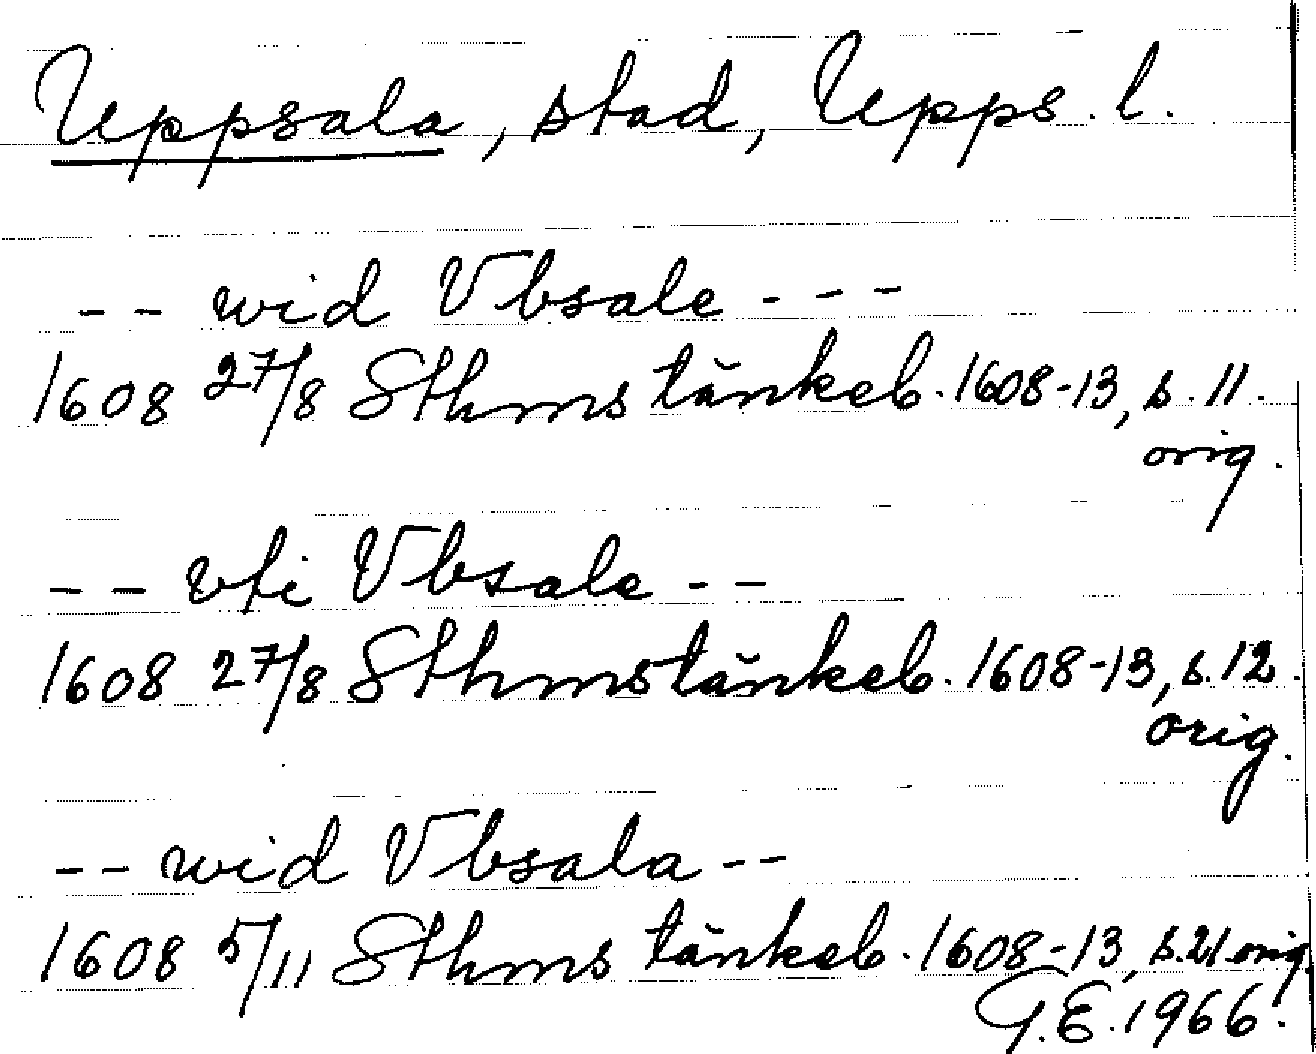 Uppsala, stad, Upps. l.
-- wid Vbsale ---
1608 27/8 Sthms tänkeb. 1608-13, s. 11.
orig.
-- vti Vbsale --
1608 27/8 Sthms tänkeb. 1608-13, s. 12.
orig.
-- wid Vbsala --
1608 5/11 Sthms tänkeb. 1608-13, s. 21. orig.
G.E. 1966.